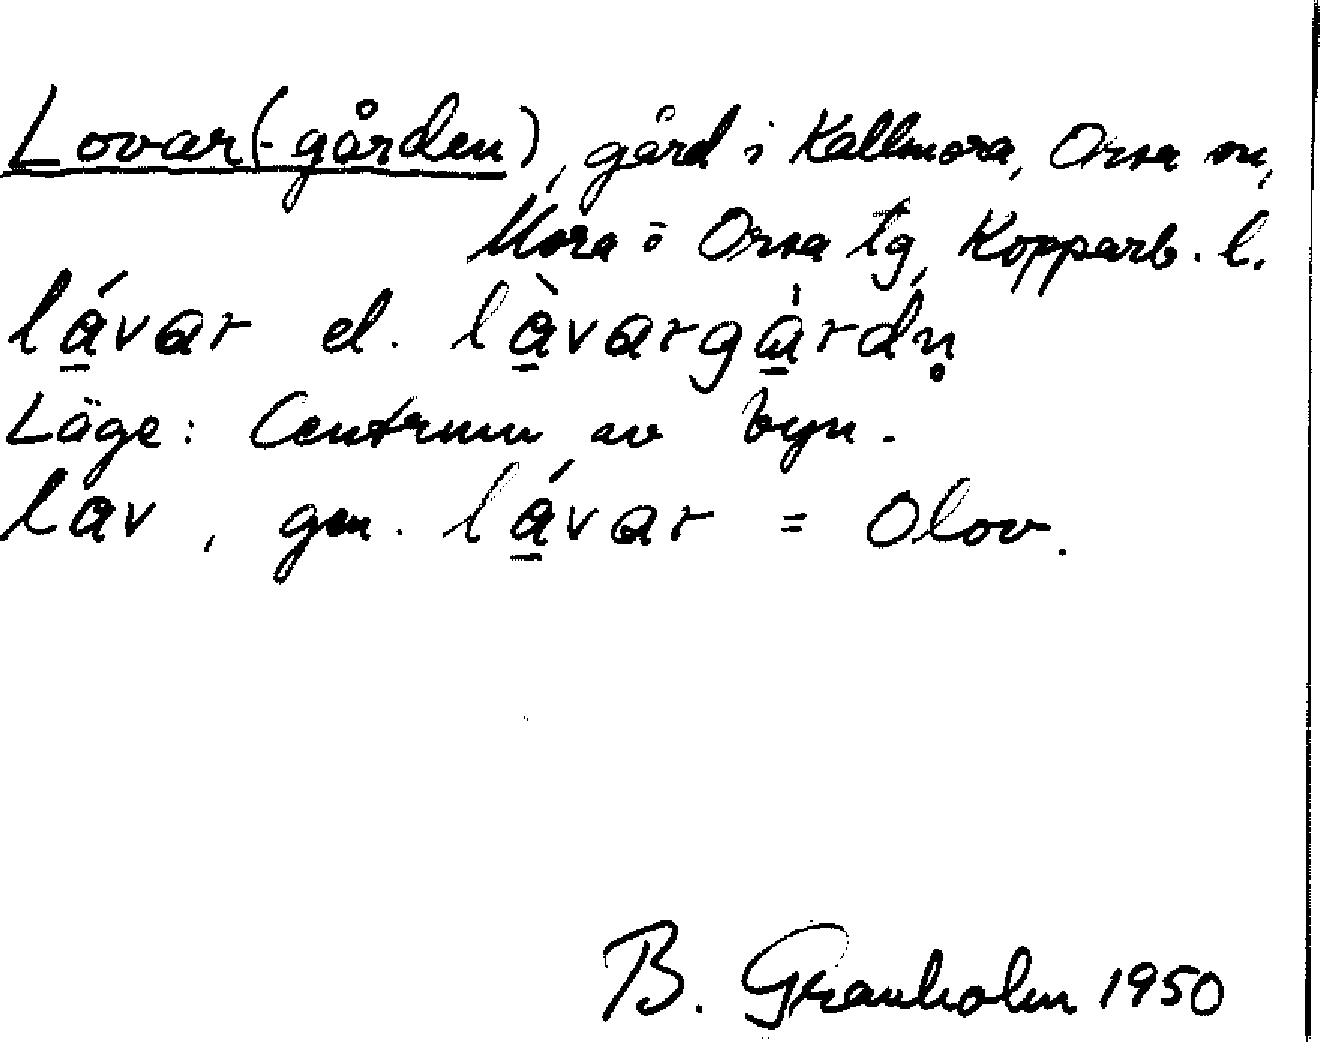 Lovar(-gården), gård i Kallmora, Orsa sn,
Mora o Orsa tg, Kopparb. l.
lá̱var el. là̱vargå̱rdn̥
Läge: Centrum av byn.
láv, gen. lá̱var = Olov.
B. Granholm 1950